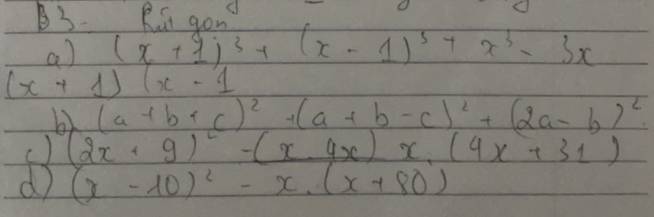 B3- Rút gọn
a) (x + 1)³ + (x - 1)³ + x³ - 3x
(x + 1) (x - 1
b) (a + b + c)² + (a + b - c)² + (2a - b)²
c) (2x + 9)² - (x 4x) x. (4x + 31)
d) (x - 10)² - x. (x + 80)